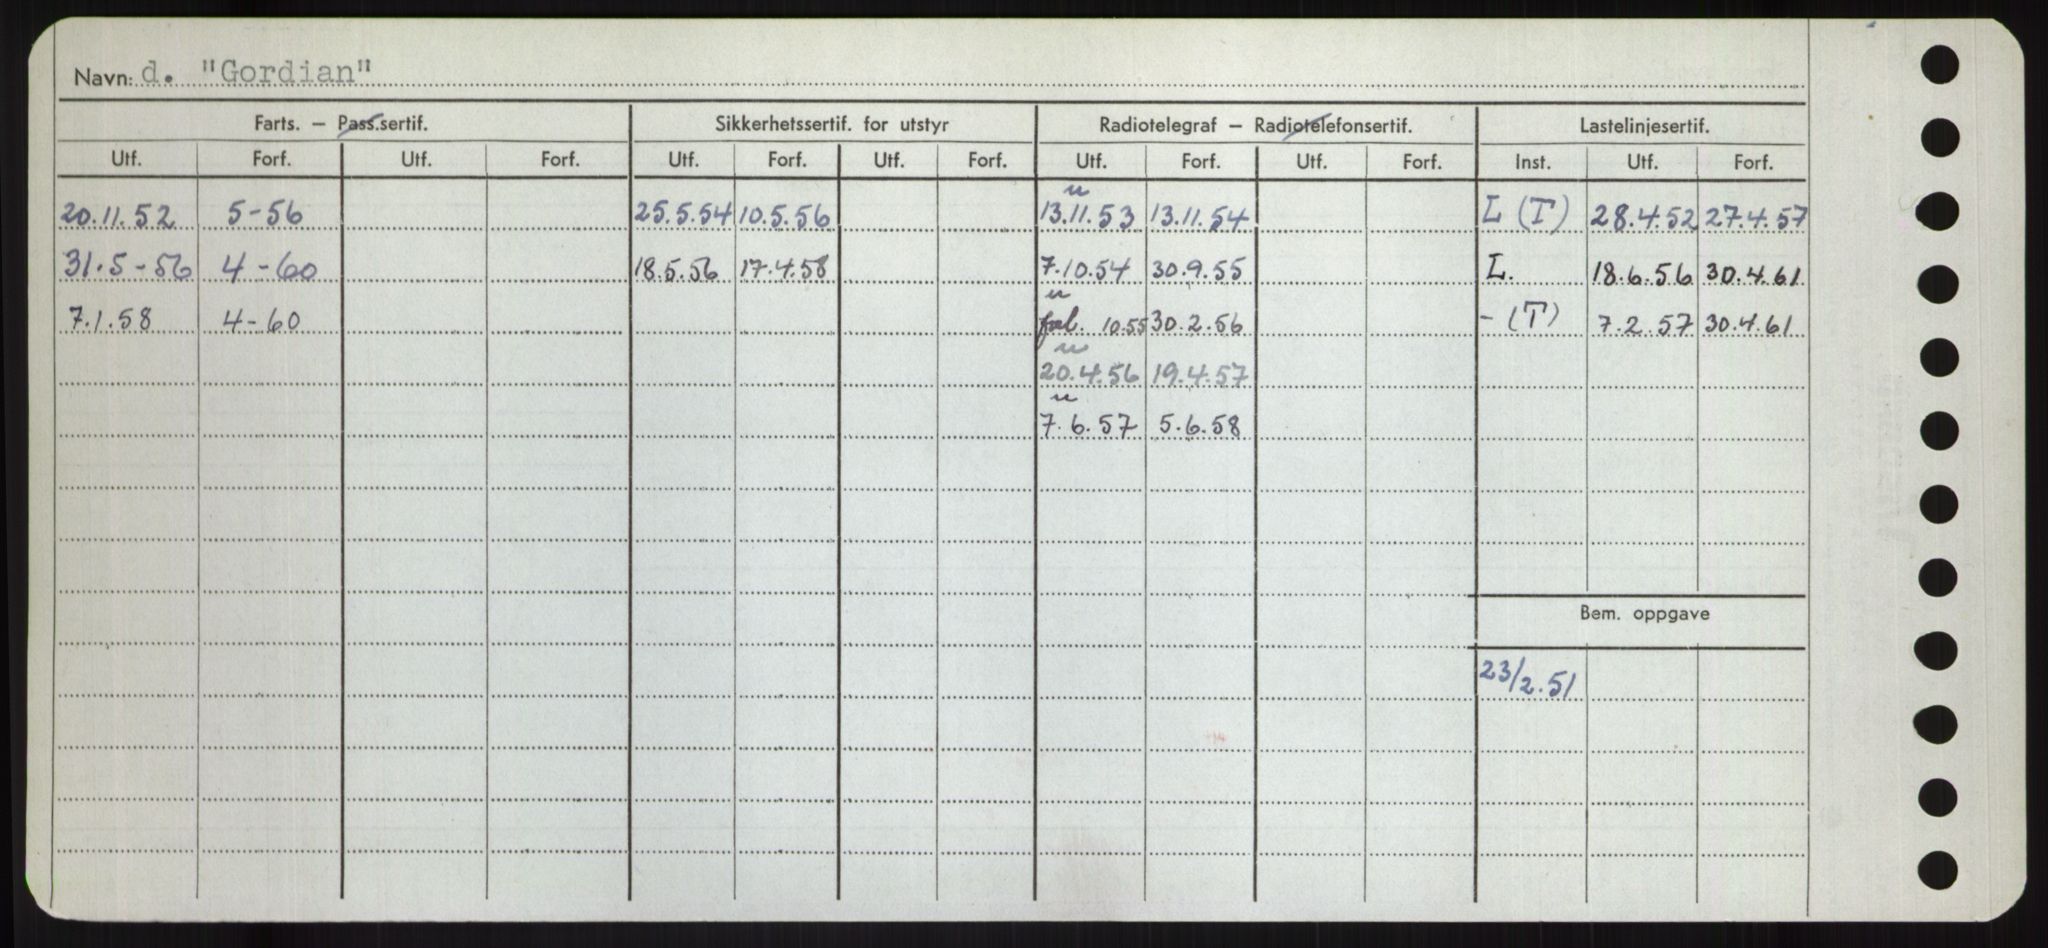 Navn: d. "Gordian"
Farts. — Pass.sertif. Sikkerhetssertif. for utstyr Radiotelegraf — Radiotelefonsertif. Lastelinjesertif.
Utf. Forf. Utf. Forf. Utf. Forf. Utf. Forf. Utf. Forf. Utf. Forf. Inst. Utf. Forf.
u
20.11.52 5-56 25.5.54 10.5.56 13.11.53 13.11.54 L (T) 28.4.52 27.4.57
31.5-56 4-60 18.5.56 17.4.58 7.10.54 30.9.55 L. 18.6.56 30.4.61
u
7.1.58 4-60 10.55 30.2.56 - (T) 7.2.57 30.4.61
u
20.4.56 19.4.57
u
7.6.57 5.6.58
Bem. oppgave
23/2.51